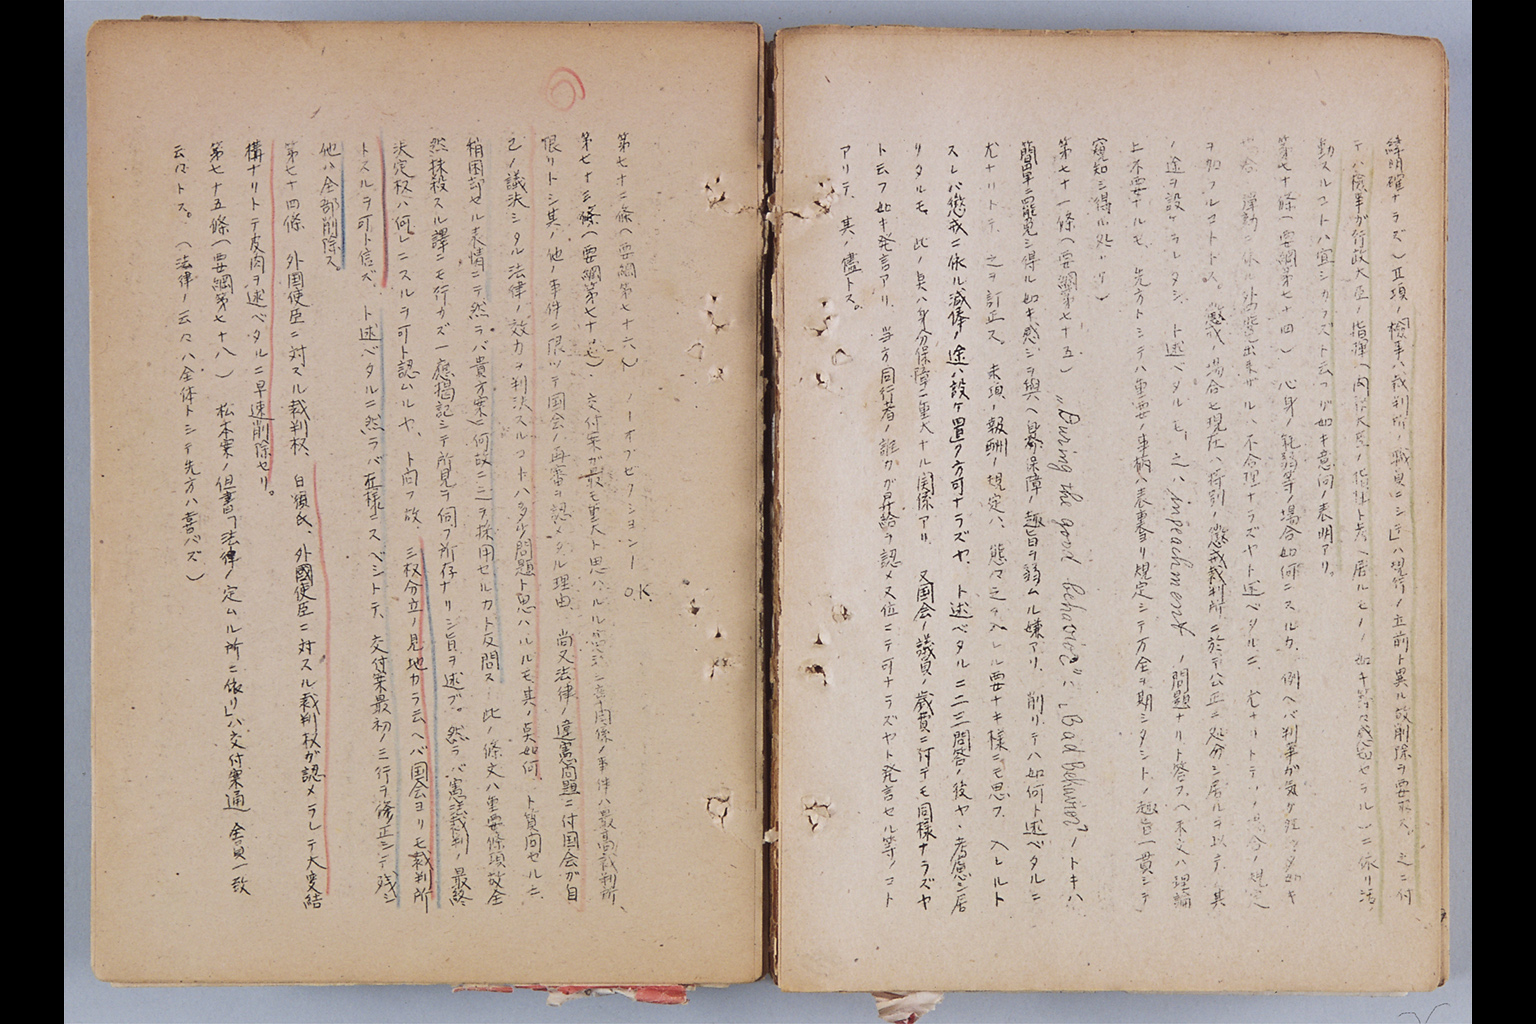 緯明確ナラズ)Ⅱ項ノ「検事ハ裁判所ノ職員ニシテ」ハ現行ノ立前ト異ル故削除ヲ要求ス。之ニ付
テハ検事が行政大臣ノ指揮(内務大臣ノ指揮ト考ヘ居ルモノノ如キ
動スルコトハ宜シカラズト云フガ如キ意向ノ表明アリ。
第七十條(要綱第七十四) 心身ノ耗弱等ノ場合如何ニスルカ、例ヘバ判事ガ気ケ狂ッタ如キ
場合、弾劾ニ依ル外罷免出来ザルハ不合理ナラズヤト述ベタルニ、尤ナリトテ
ヲ加フルコトトス。懲戒ノ場合モ現在ハ特別ノ懲戒裁判所ニ於テ公正ニ処分シ居ルヲ以テ、其
ノ途ヲ設ケラレタシ、ト述ベタルモ、之ハ impeachment ノ問題ナリト答フ。
上不要ナルモ、先方トシテハ重要ノ事柄ハ表裏ヨリ規定シテ万全ヲ期シタシトノ趣旨一貫シテ
窺知シ得ル処ナリ)
第七十一條(要綱第七十五) „During the good behavior” ハ „Bad behavior” ノトキハ
簡単ニ罷免シ得ル如キ感ジヲ與ヘ身分保障ノ趣旨ヲ弱ムル嫌アリ、削リテハ如何ト述ベタルニ
尤ナリトテ、之ヲ訂正ス。末項ノ報酬ノ規定ハ、態々之ヲ入レル要ナキ様ニモ思フ、入レルト
スレバ懲戒ニ依ル減俸ノ途ハ設ケ置ク方可ナラズヤ、ト述ベタルニ二三問答ノ後ヤヽ考慮シ居
リタルモ、此ノ点ハ身分保障ニ重大ナル関係アリ、又国会ノ議員ノ歳費ニ付テモ同様ナラズヤ
ト云フ如キ発言アリ、当方同行者ノ誰カガ昇給ヲ認メヌ位ニテ可ナラズヤト発言セル等ノコト
アリテ、其ノ儘トス。
第七十二條(要綱第七十六) ノーオブゼクションー O.K.
第七十三條(要綱第七十七)、交付案ガ最モ重大ト思ハルル 事件ハ最高裁判所
限リトシ其ノ他ノ事件ニ限ッテ国会ノ再審ヲ認メタル理由、尚又法律ノ違憲問題ニ付国会ガ自
己ノ議決シタル法律ノ效力ヲ判決スルコトハ多少問題ト思ハルルモ其ノ点如何、ト質問セルニ
稍困却セル表情ニテ然ラバ貴方案ハ何故ニ之ヲ採用セルカト反問ス 此ノ條文ハ重要條項故全
然抹殺スル譯ニモ行カズ一應掲記シテ所見ヲ伺フ所存ナリシ旨ヲ述ブ。然ラバ憲法裁判ノ最終
決定权ハ何レニスルヲ可ト認ムルヤ、ト向フ故、三权分立ノ見地カラ云ヘバ国会ヨリモ裁判所
トスルヲ可ト信ズ、ト述ベタルニ然ラバ左様ニスベシトテ、交付案最初ノ三行ヲ修正シテ残シ
他ハ全部削除ス。
第七十四條 外国使臣ニ対スル裁判权、白須氏、外國使臣ニ対スル裁判权ガ認メラレテ大変結
構ナリトテ皮肉ヲ述ベタルニ早速削除セリ。
第七十五條(要綱第七十八) 松本案ノ但書「法律ノ定ムル所ニ依リ」ハ交付案通 全員一致
云々トス。(法律ノ云々ハ全体トシテ先方ハ喜バズ)